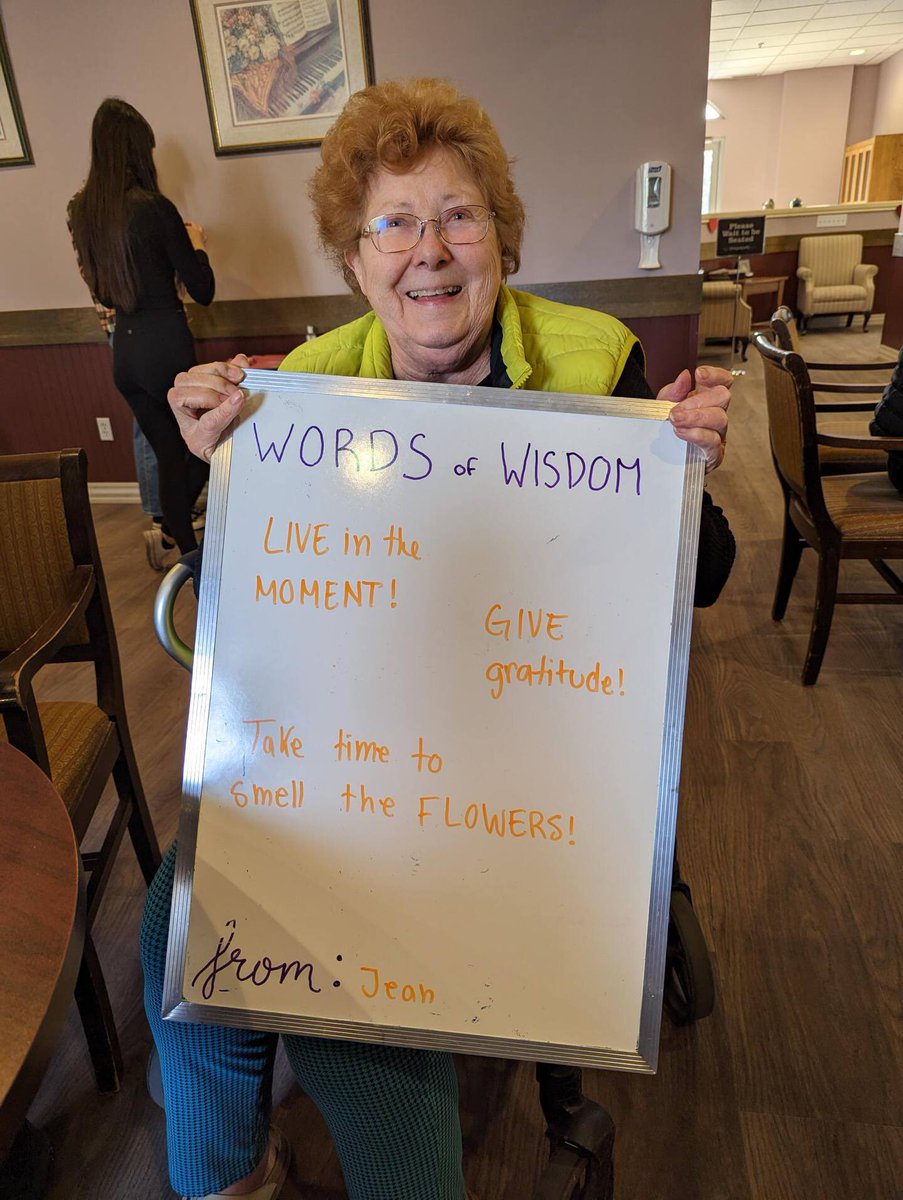 WORDS of WISDOM
LIVE in the
MOMENT!
GIVE
gratitude!
Take time to
smell the FLOWERS!
from: Jean
Please
Wait to be
Seated